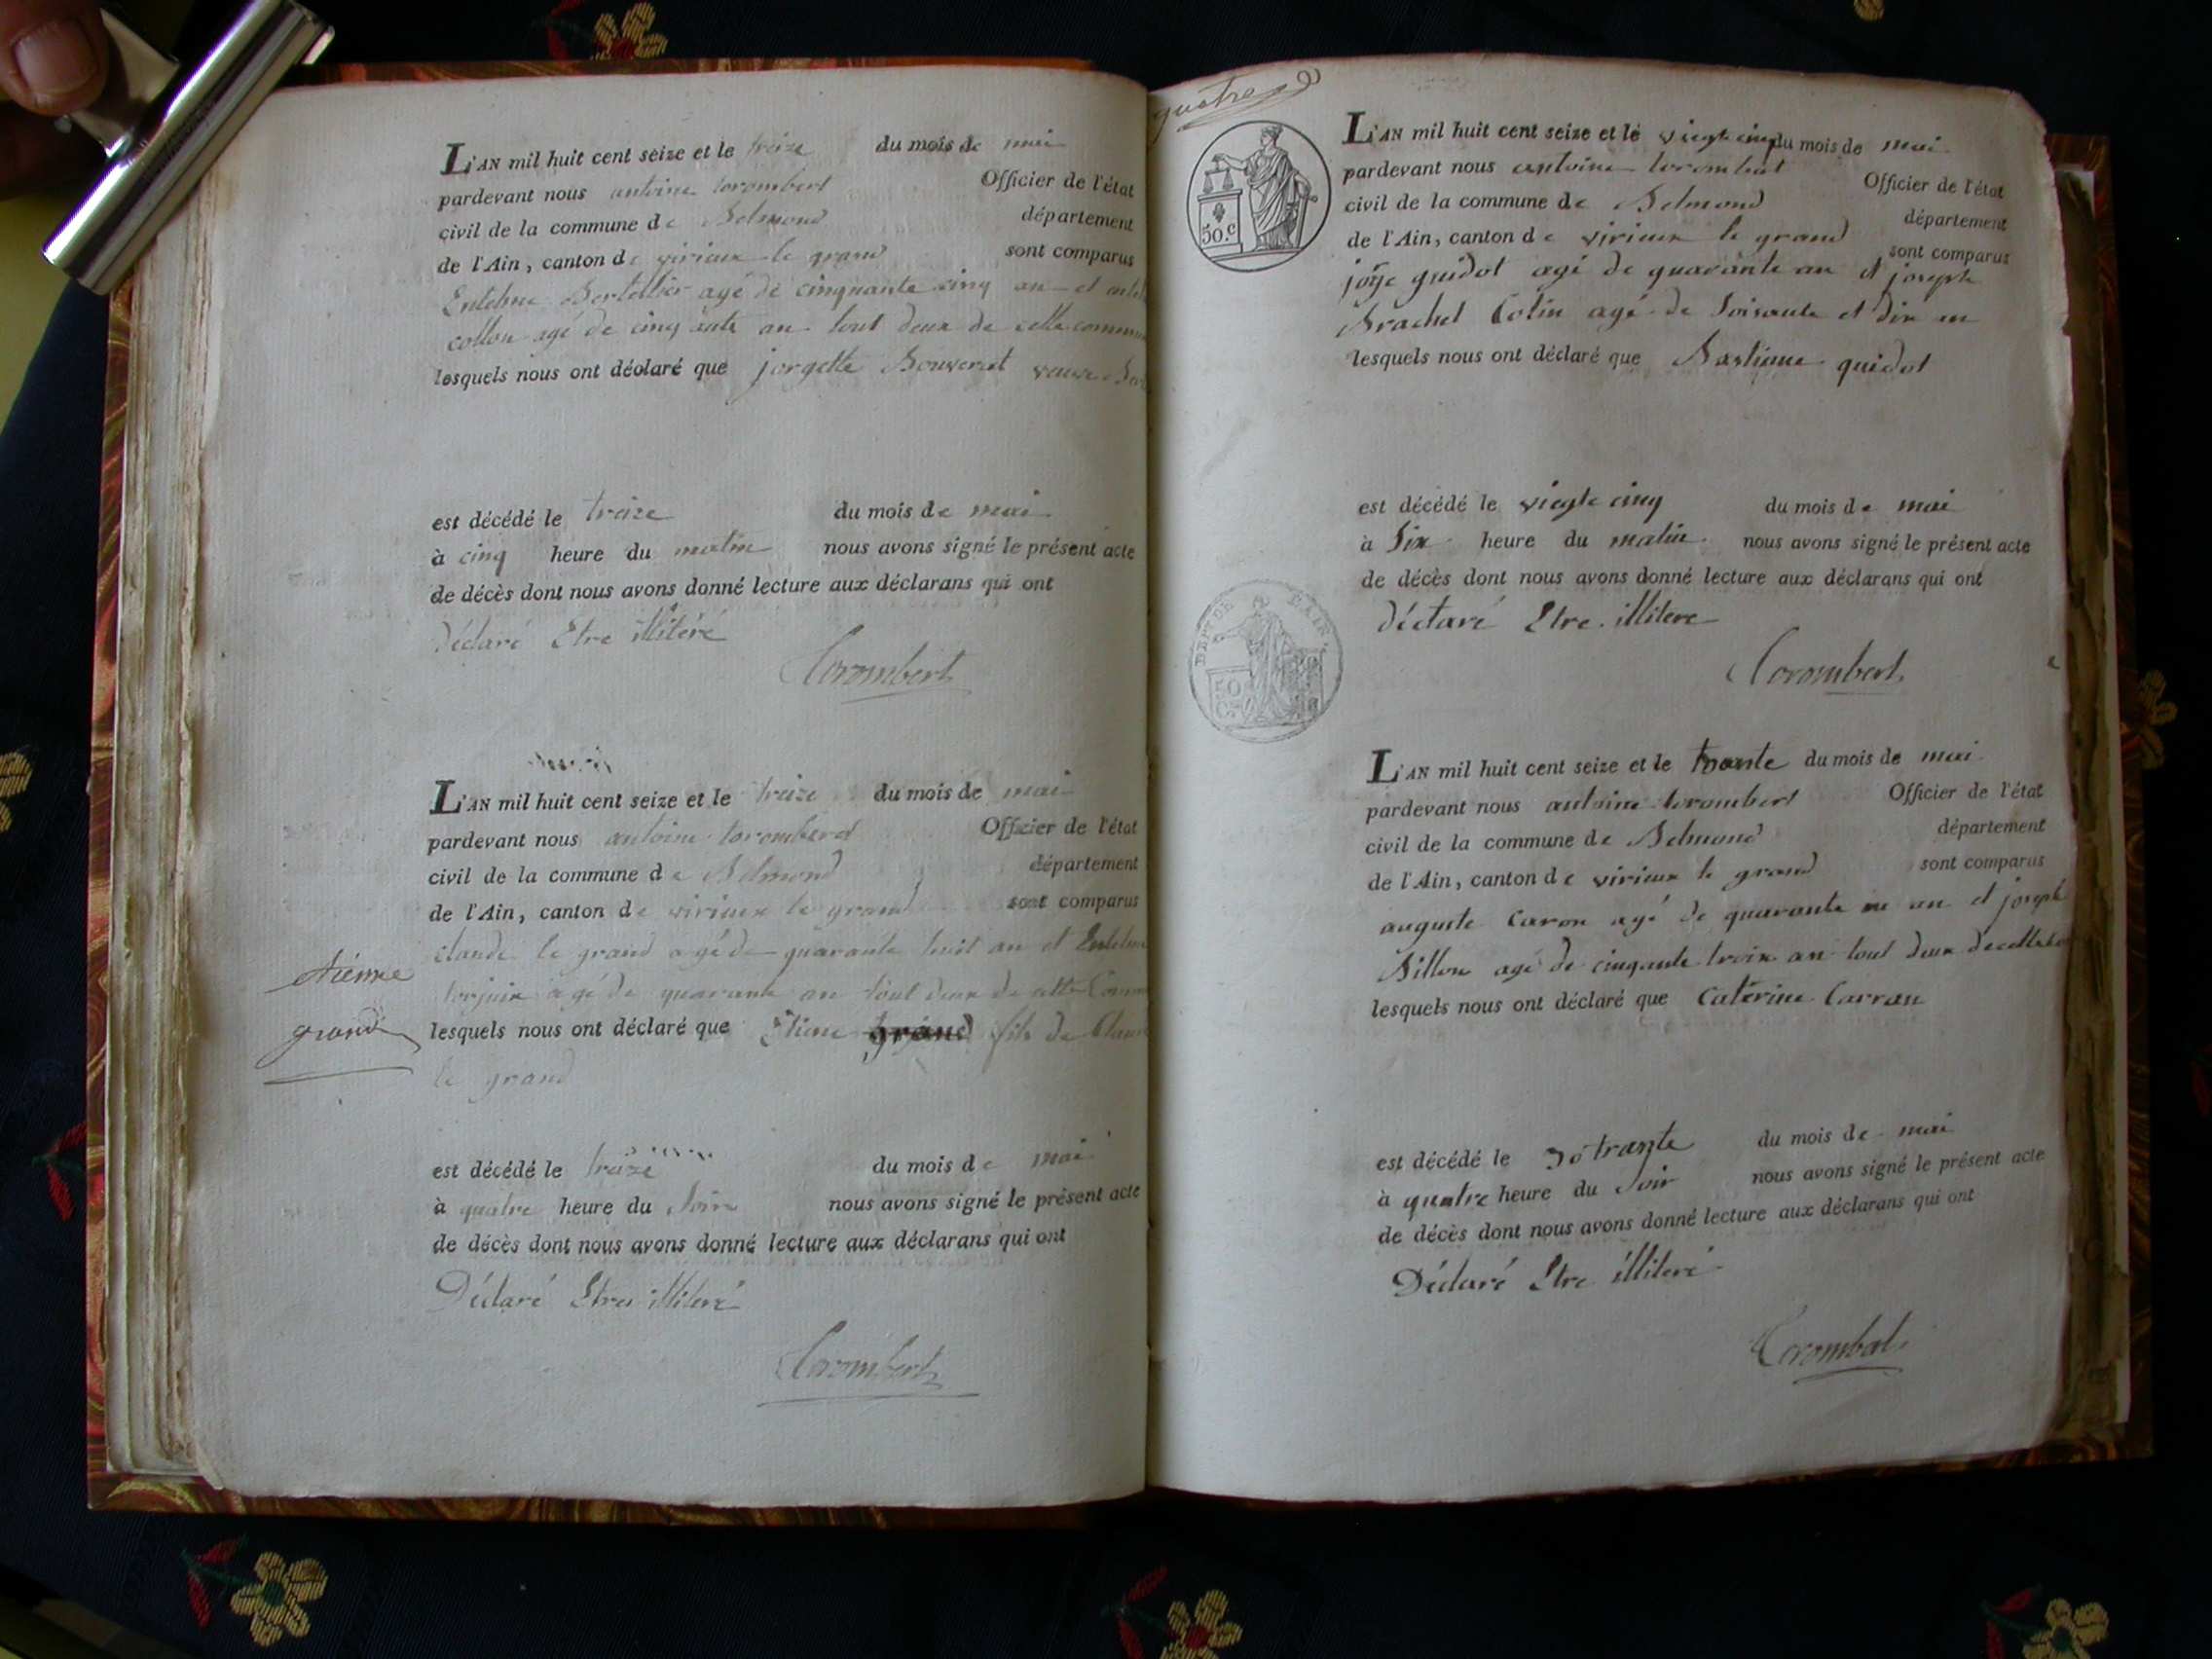 L'AN mil huit cent seize et le treize du mois de mai
pardevant nous antoine torombert Officier de l'état
civil de la commune de Belmond département
de l'Ain, canton de virieux le grand sont comparus
Entelme Bertellier agé de cinquante cinq an et
collon agé de cinq ante an tout deux de cette commu
lesquels nous ont déclaré que jorgette Bouveret veuve
est décédé le treize du mois de mai
à cinq heure du matin nous avons signé le présent acte
de décès dont nous avons donné lecture aux déclarans qui ont
Déclaré Etre illiteré
Torombert
L'AN mil huit cent seize et le treize du mois de mai
pardevant nous antoine torombert Officier de l'état
civil de la commune de Belmond département
de l'Ain, canton de virieux le grand sont comparus
claude le grand agé de quarante huit an et Entelme
torjuix agé de quarante an tout deux de cette Comm
étienne
grand
lesquels nous ont déclaré que Etiene grand fils de Clau
le grand
est décédé le treize du mois de mai
à quatre heure du Soir nous avons signé le présent acte
de décès dont nous avons donné lecture aux déclarans qui ont
Déclaré Etre illiteré
Torombert
quatre
50.c
L'AN mil huit cent seize et le viegt cinq du mois de mai
pardevant nous antoine torombert Officier de l'état
civil de la commune de Belmond département
de l'Ain, canton de virieux le grand sont comparus
guidot agé de quarante an et joseph
Brachet Colin agé de Soisante et dix an
lesquels nous ont déclaré que Bastiene guidot
est décédé le viegte cinq du mois de mai
à Six heure du matin nous avons signé le présent acte
de décès dont nous avons donné lecture aux déclarans qui ont
Déclaré Etre illitere
DEPT DE L'AIN
Torombert
L'AN mil huit cent seize et le trante du mois de mai
pardevant nous antoine torombert Officier de l'état
civil de la commune de Belmond département
de l'Ain, canton de virieux le grand sont comparus
auguste Caron agé de quarante an et joseph
Billon agé de cinqante troix an tout deux de cette
lesquels nous ont déclaré que Caterine Carran
est décédé le 30 trante du mois de mai
à quatre heure du Soir nous avons signé le présent acte
de décès dont nous avons donné lecture aux déclarans qui ont
Déclaré Etre illiteré
Torombert